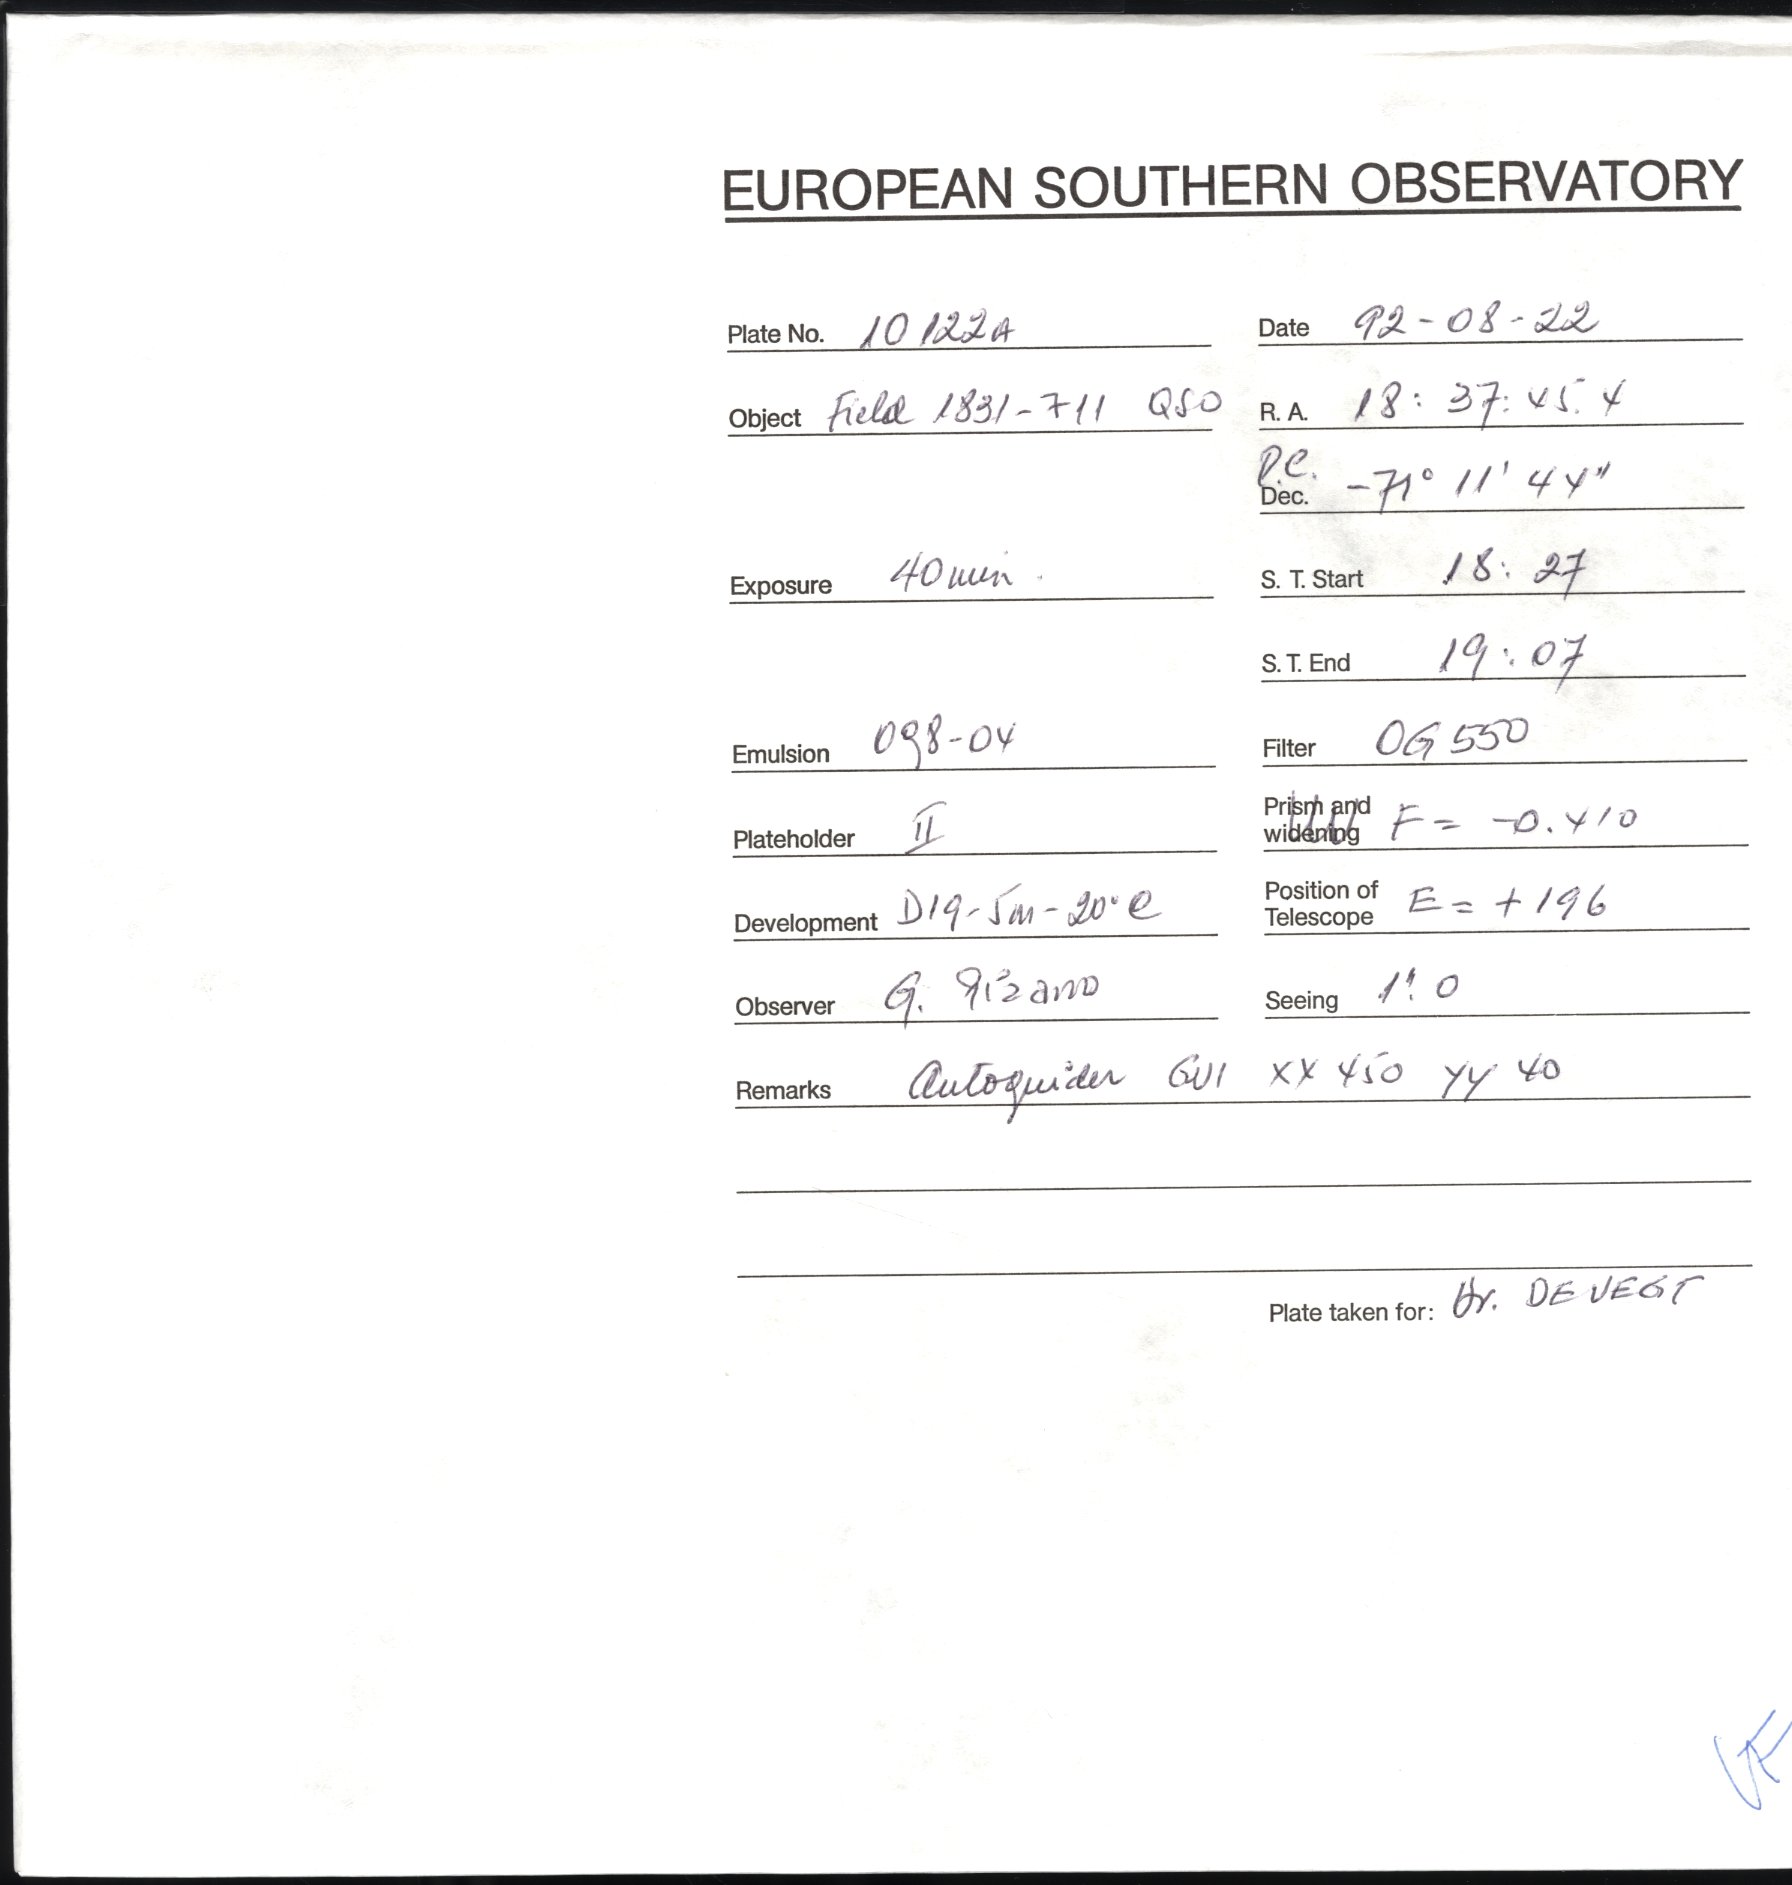 EUROPEAN SOUTHERN OBSERVATORY
Plate No. 10122A Date 92-08-22
Object Field 1831-711 QSO R. A. 18: 37: 45. 4
P.C.
Dec. -71° 11' 44"
Exposure 40min. S. T. Start 18: 27
S. T. End 19: 07
Emulsion 098-04 Filter OG 550
Plateholder II Prism and widening F = -0.410
Development D19-5m-20°C Position of Telescope E = +196
Observer G. Pizarro Seeing 1". 0
Remarks Autoguider GUI XX 450 YY 40
Plate taken for: Dr. DE VEGT